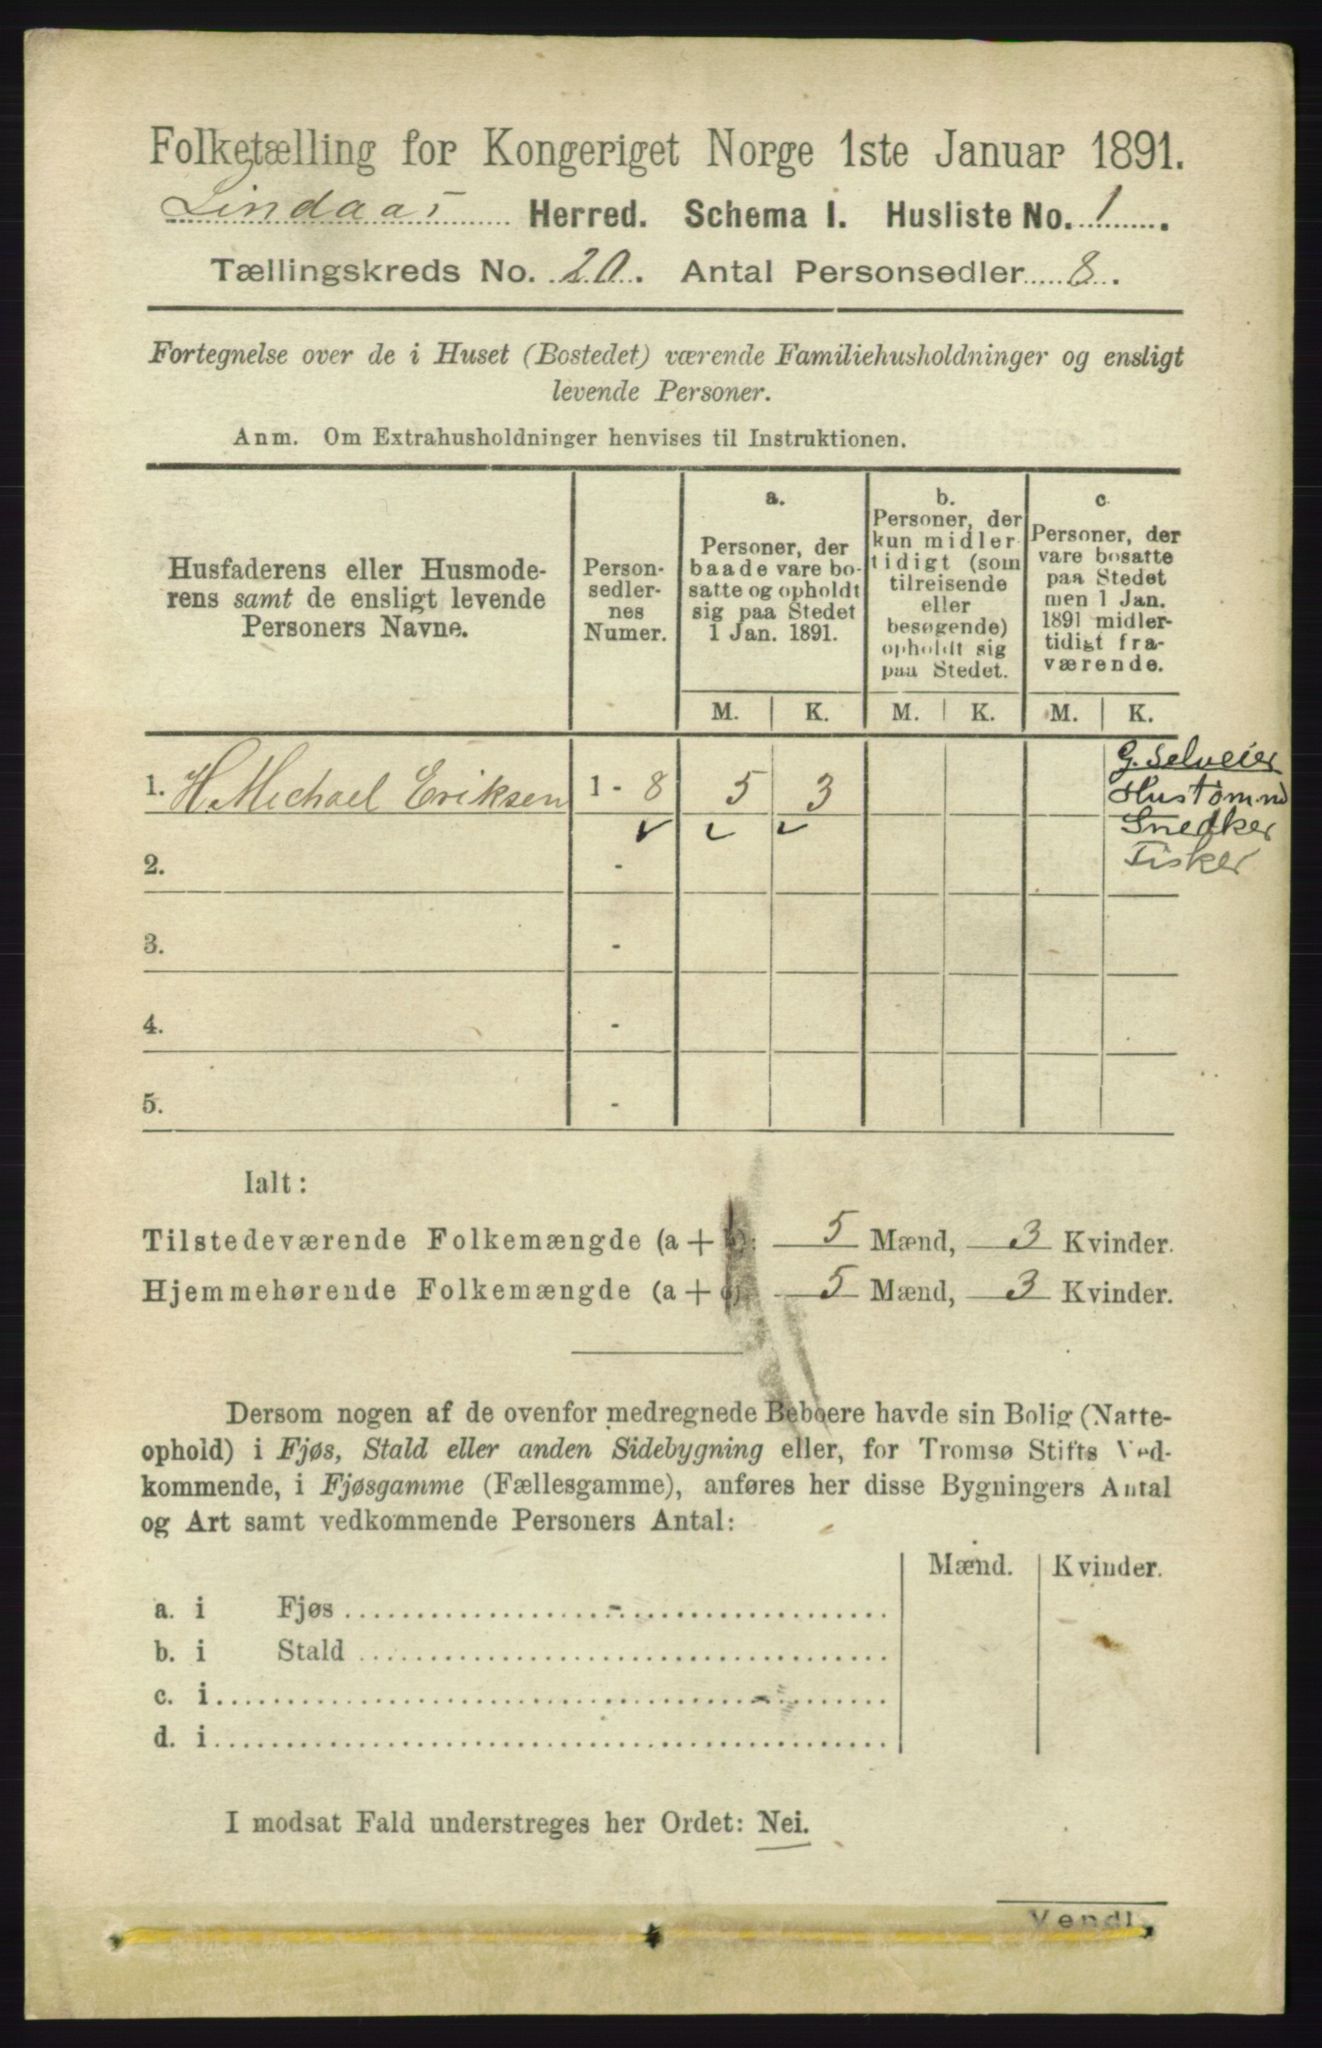 Folketælling for Kongeriget Norge 1ste Januar 1891.
Lindaas Herred. Schema I. Husliste No. 1.
Tællingskreds No. 20. Antal Personsedler 8.
Fortegnelse over de i Huset (Bostedet) værende Familiehusholdninger og ensligt
levende Personer.
Anm. Om Extrahusholdninger henvises til Instruktionen.
Husfaderens eller Husmode-
rens samt de ensligt levende
Personers Navne.
Person-
sedler-
nes
Numer.
a.
Personer, der
baade vare bo-
satte og opholdt
sig paa Stedet
1 Jan. 1891.
b.
Personer, der
kun midler-
tidigt (som
tilreisende
eller
besøgende)
opholdt sig
paa Stedet.
c
Personer, der
vare bosatte
paa Stedet
men 1 Jan.
1891 midler-
tidigt fra-
værende.
M. K. M. K. M. K.
1. H. Michael Eriksen 1 - 8 5 3
G. Selveier
Hustømmd
Snedker
Fisker
2. -
3. -
4. -
5. -
Ialt:
Tilstedeværende Folkemængde (a + b): 5 Mænd, 3 Kvinder.
Hjemmehørende Folkemængde (a + c): 5 Mænd, 3 Kvinder.
Dersom nogen af de ovenfor medregnede Beboere havde sin Bolig (Natte-
ophold) i Fjøs, Stald eller anden Sidebygning eller, for Tromsø Stifts Ved-
kommende, i Fjøsgamme (Fællesgamme), anføres her disse Bygningers Antal
og Art samt vedkommende Personers Antal:
Mænd. Kvinder.
a. i Fjøs
b. i Stald
c. i
d. i
I modsat Fald understreges her Ordet: Nei.
Vend!